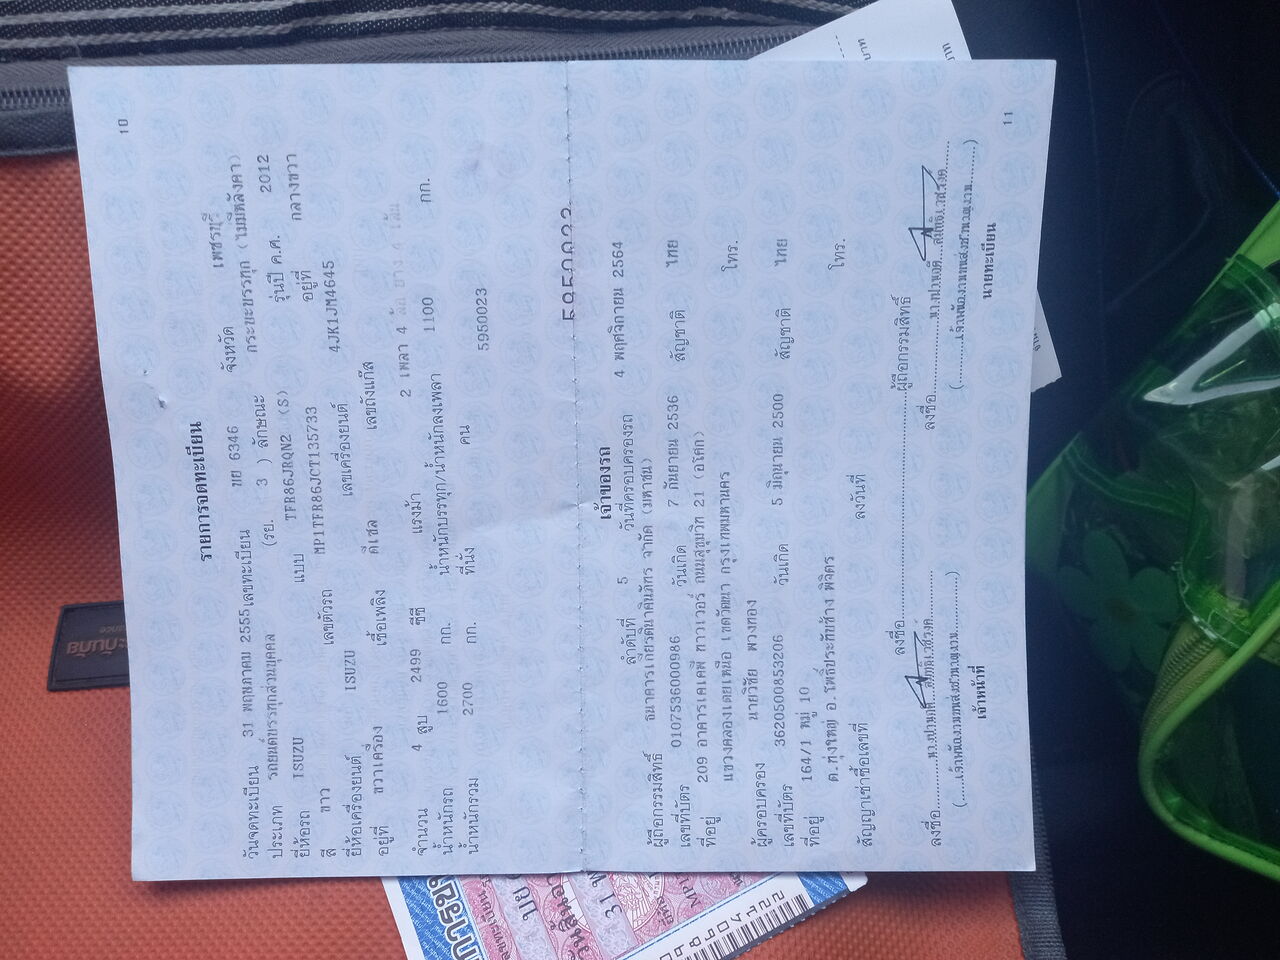 10
รายการจดทะเบียน
วันจดทะเบียน 31 พฤษภาคม 2555 เลขทะเบียน ขย 6346 จังหวัด เพชรบุรี
ประเภท รถยนต์บรรทุกส่วนบุคคล (รย. 3 ) ลักษณะ กระบะบรรทุก (ไม่มีหลังคา)
ยี่ห้อรถ ISUZU แบบ TFR86JRQN2 (S) รุ่นปี ค.ศ. 2012
สี ขาว เลขตัวรถ MP1TFR86JCT135733 อยู่ที่ กลางขวา
ยี่ห้อเครื่องยนต์ ISUZU เลขเครื่องยนต์ 4JK1JM4645
อยู่ที่ ขวาเครื่อง เชื่อเพลิง ดีเซล เลขถังแก๊ส
จำนวน 4 สูบ 2499 ซีซี แรงม้า 2 เพลา 4 ล้อ ยาง 4 เส้น
น้ำหนักรถ 1600 กก. น้ำหนักบรรทุก/น้ำหนักลงเพลา 1100 กก.
น้ำหนักรวม 2700 กก. ที่นั่ง คน 5950023
5950023
เจ้าของรถ
ลำดับที่ 5 วันที่ครอบครองรถ 4 พฤศจิกายน 2564
ผู้ถือกรรมสิทธิ์ ธนาคารเกียรตินาคินภัทร จำกัด (มหาชน)
เลขที่บัตร 0107536000986 วันเกิด 7 กันยายน 2536 สัญชาติ ไทย
ที่อยู่ 209 อาคารเคเคพี ทาวเวอร์ ถนนสุขุมวิท 21 (อโศก)
แขวงคลองเตยเหนือ เขตวัฒนา กรุงเทพมหานคร โทร.
ผู้ครอบครอง นายวิชัย พวงทอง
เลขที่บัตร 3620500853206 วันเกิด 5 มิถุนายน 2500 สัญชาติ ไทย
ที่อยู่ 164/1 หมู่ 10
ต.ทุ่งใหญ่ อ.โพธิ์ประทับช้าง พิจิตร โทร.
สัญญาเช่าซื้อเลขที่ ลงวันที่
ลงชื่อ ผู้ถือกรรมสิทธิ์
ลงชื่อ ลงชื่อ
เจ้าหน้าที่ นายทะเบียน
11
31 พ
MP1
บาท